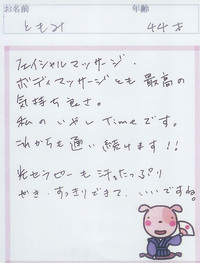 お名前 年齢
ともみ 44才
フェイシャルマッサージ・
ボディマッサージとも 最高の
気持ち良さ。
私のいやしTimeです。
これからも通い続けます!!
光セラピーも汗たっぷり
でき、すっきりできて、いいですね。